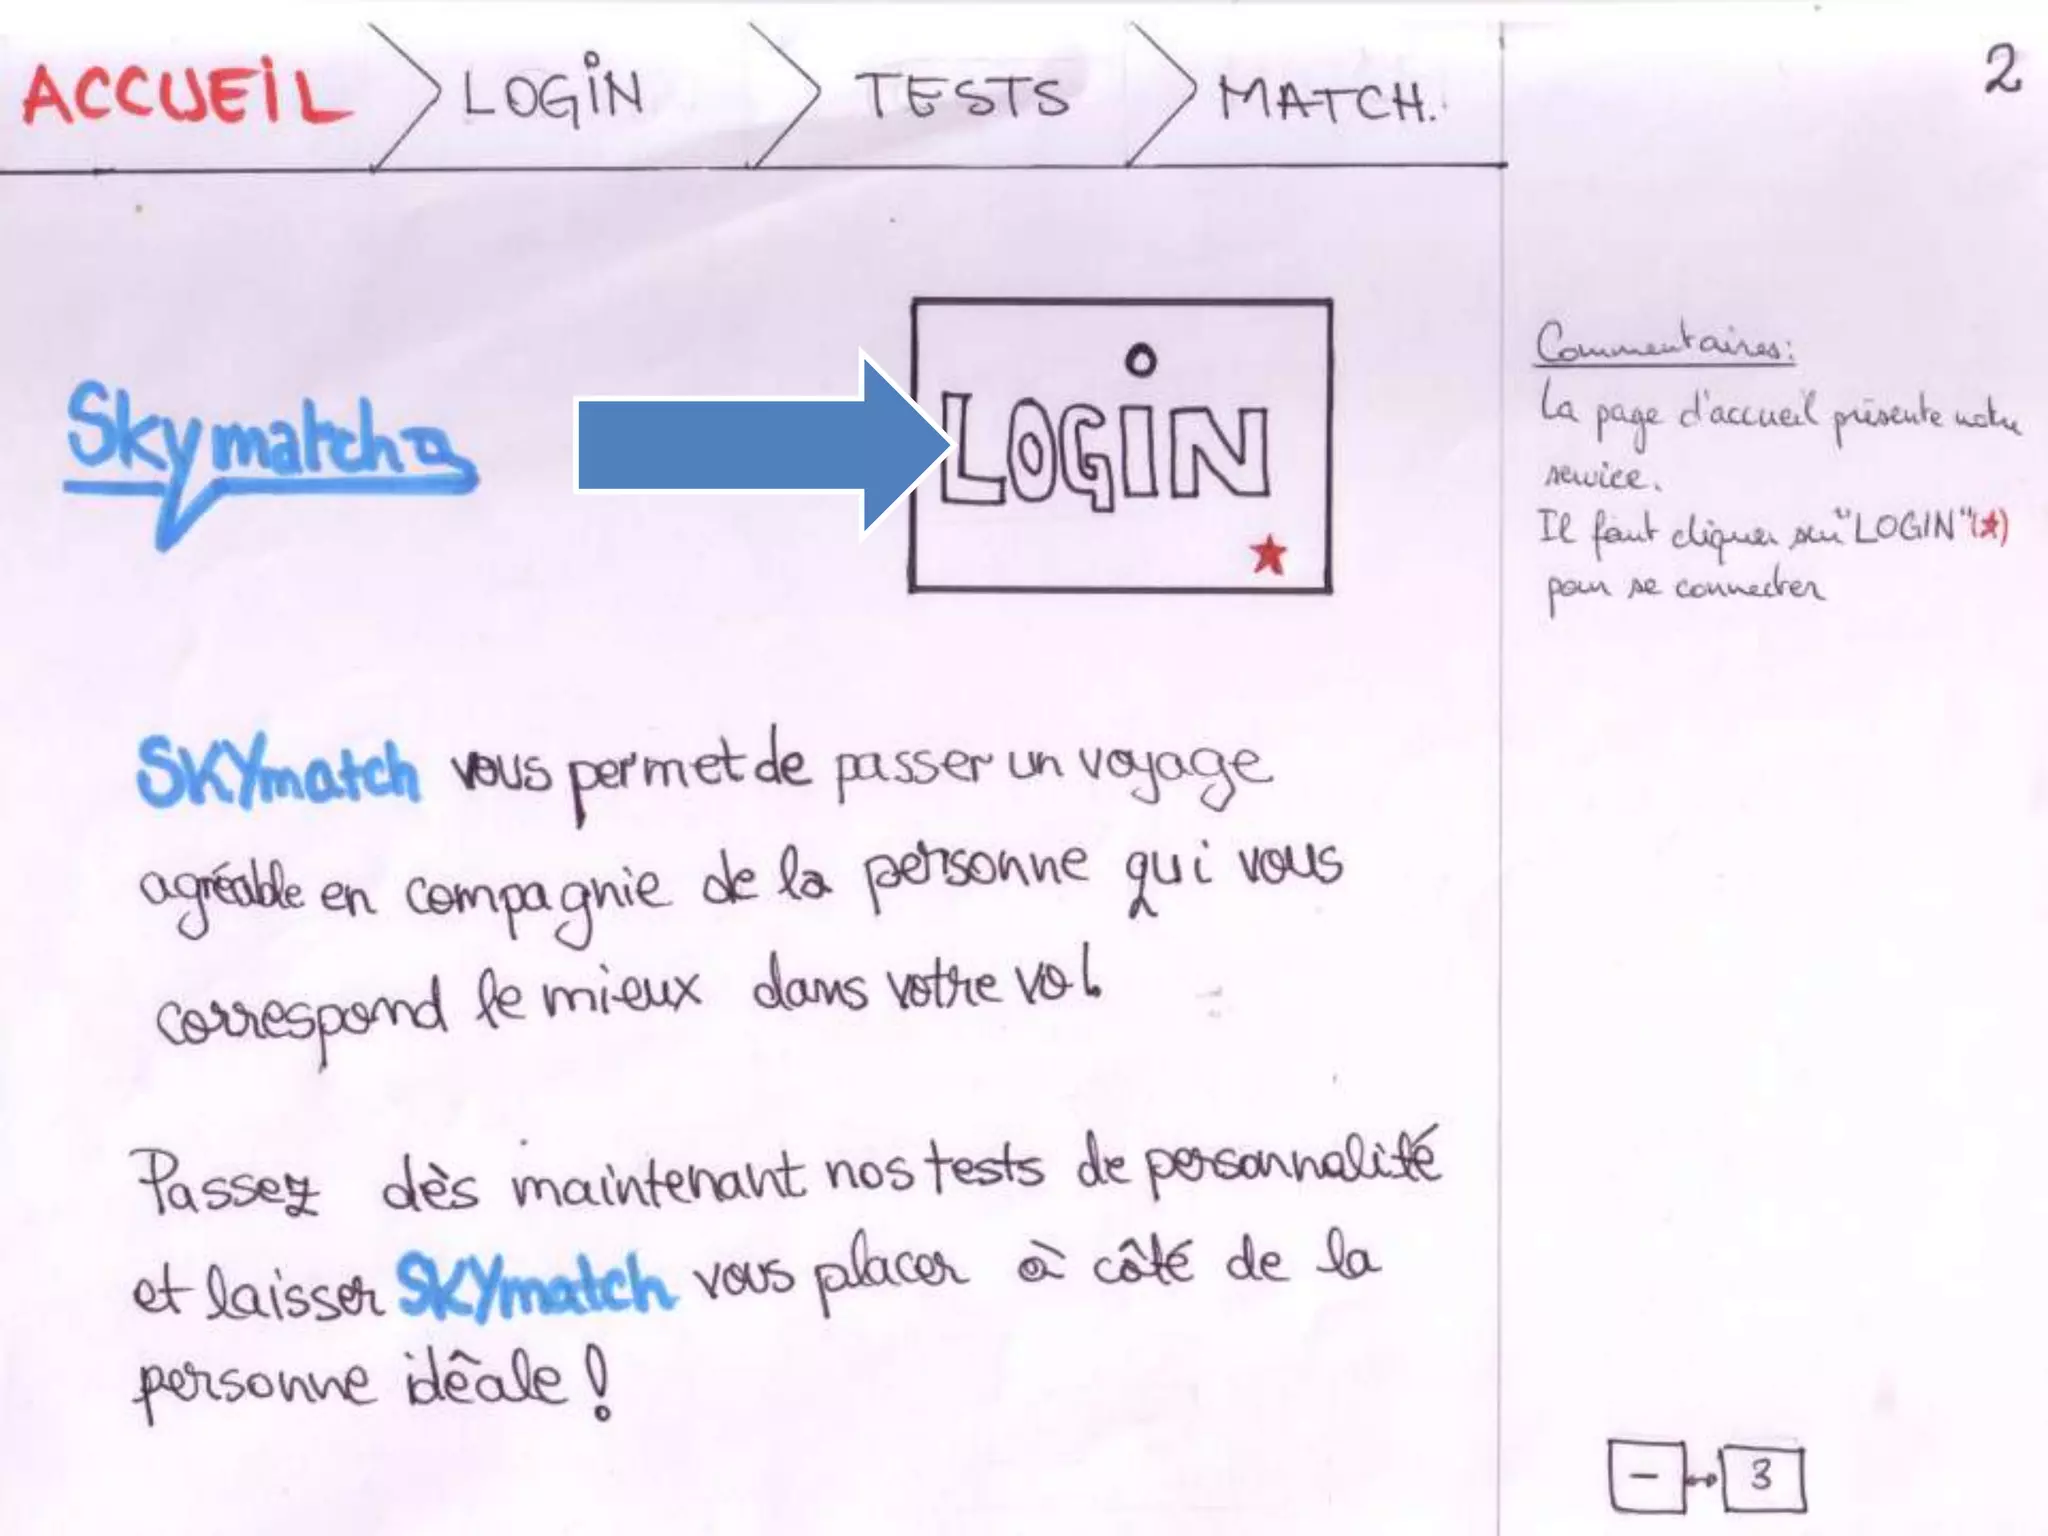 ACCUEIL LOGIN TESTS MATCH. 2
Skymatch
LOGIN
Commentaires:
La page d'accueil présente notre
service.
Il faut cliquer sur "LOGIN" (★)
pour se connecter
SKYmatch vous permet de passer un voyage
agréable en compagnie de la personne qui vous
correspond le mieux dans votre vol
Passez dès maintenant nos tests de personnalité
et laisser SKYmatch vous placer à côté de la
personne idêale !
- ↔ 3